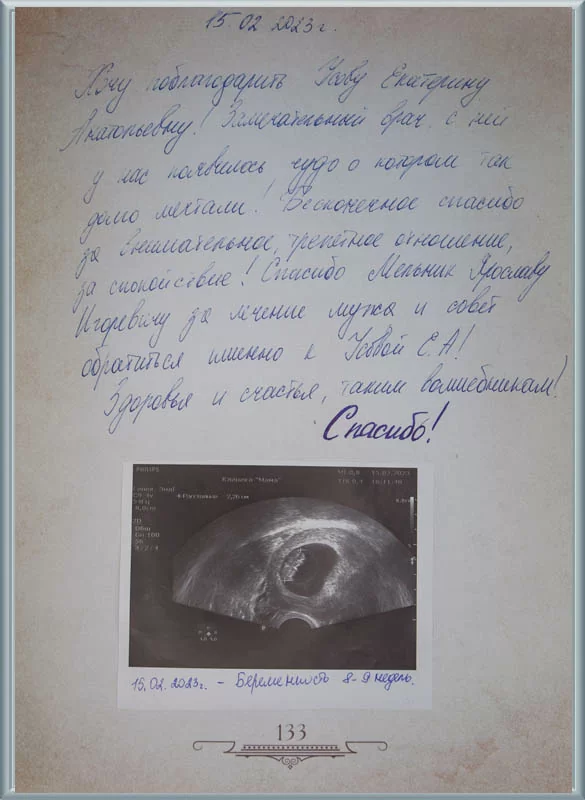 15.02 2023 г.
Хочу поблагодарить Усову Екатерину
Анатольевну! Замечательный врач, с ней
у нас появилось чудо о котором так
долго мечтали! Бесконечное спасибо
за внимательное, трепетное отношение,
за спокойствие! Спасибо Мельник Ярославу
Игоревичу за лечение мужа и совет
обратиться именно к Усовой Е.А!
Здоровья и счастья, таким волшебникам!
Спасибо!
PHILIPS
Клиника "Мама"
MI 0,8 15.02.2023
16:11:48
Расстояние 2,26 см
2D
15.02.2023г. - Беременность 8-9 недель.
133